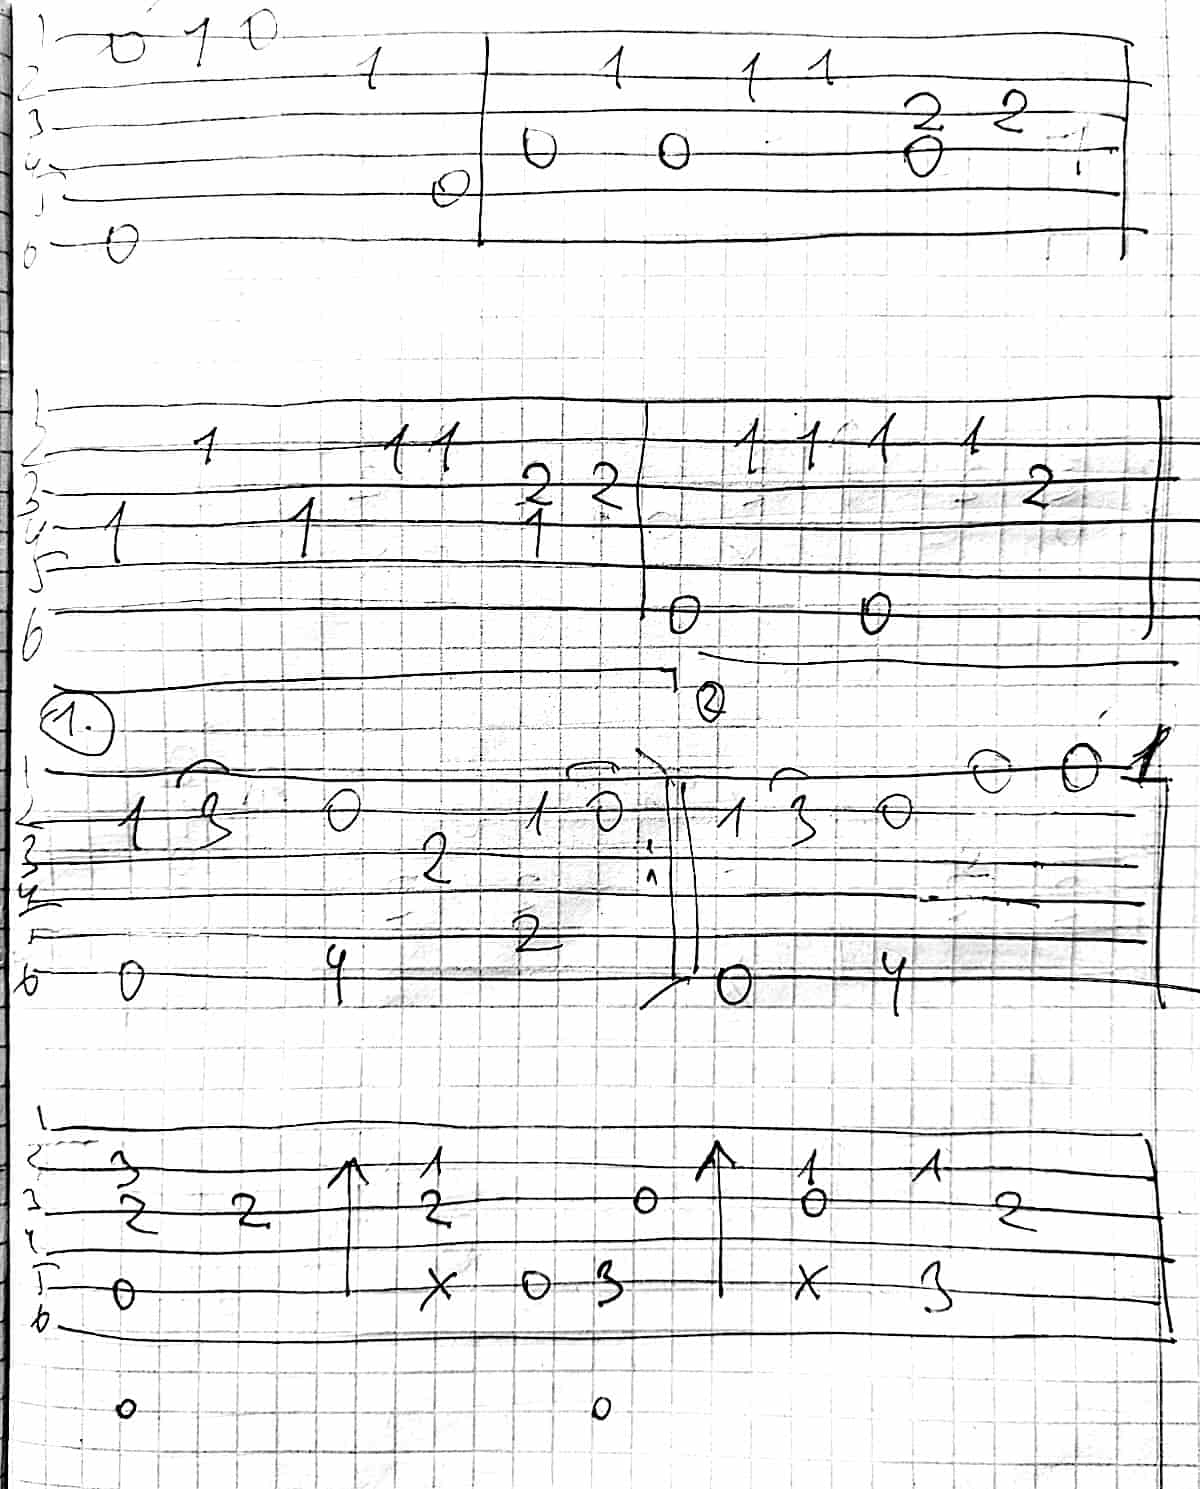 1 0 1 0
2 1 1 1 1
3 2 2
4 0 0 0
5 0
6 0
1
2 1 1 1 1 1 1 1
3 2 2 2
4 1 1 1
5
6 0 0
1. 2
1 0 0 1
2 1 3 0 1 0 1 3 0
3 2
4
5 2
6 0 4 0 4
1
2 3 1 1 1
3 2 2 2 0 0 2
4
5 0 x 0 3 x 3
6
0 0